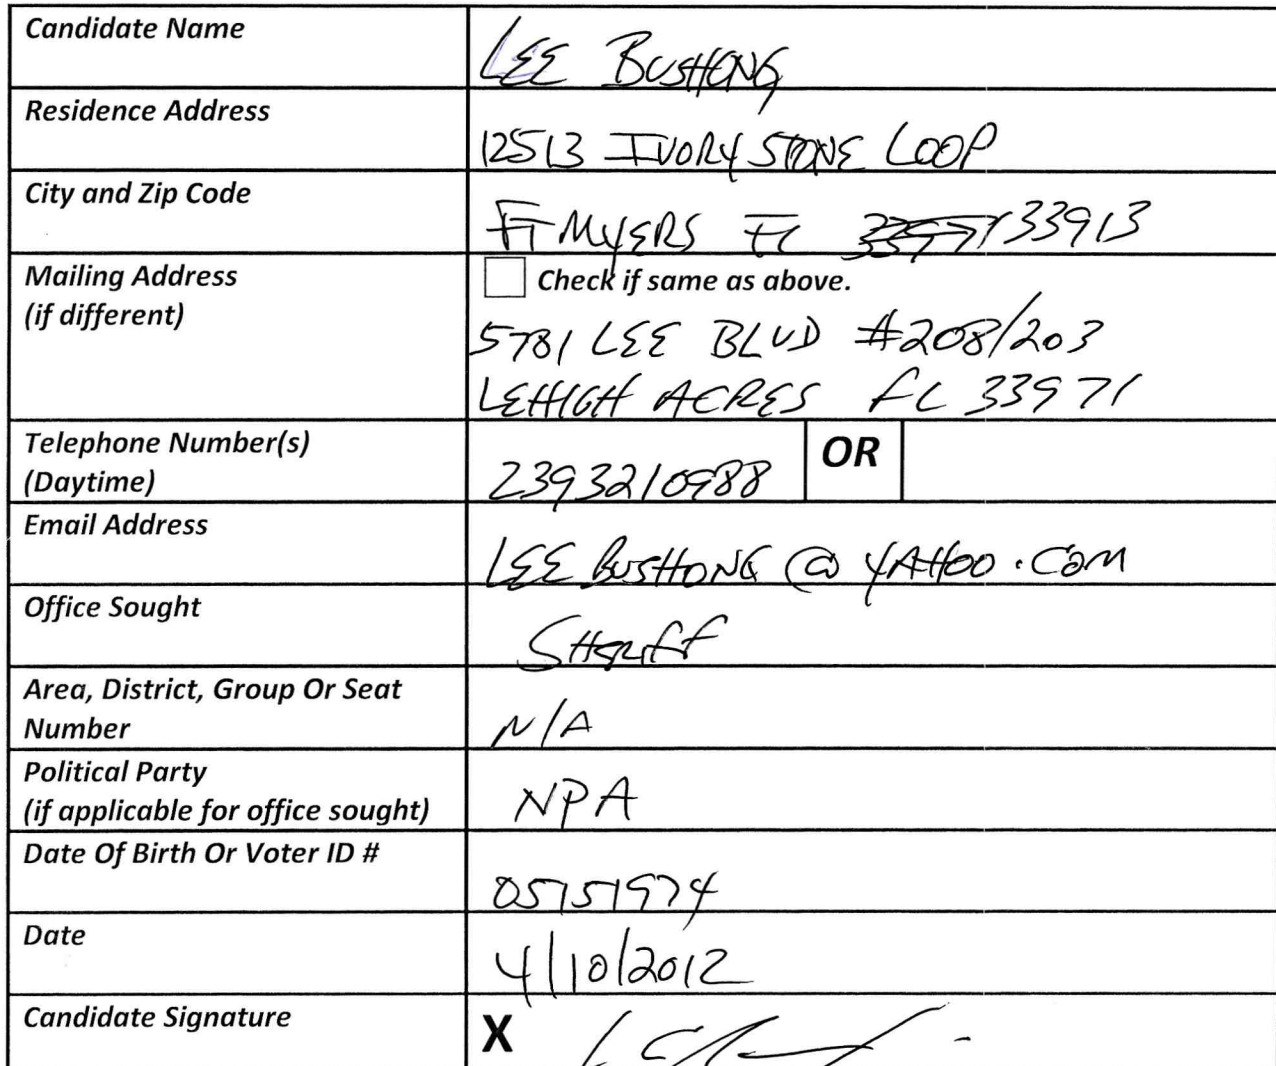 Candidate Name
LEE BUSHONG
Residence Address
12513 IVORY STONE LOOP
City and Zip Code
FT MYERS FL 33971 33913
Mailing Address
(if different)
Check if same as above.
5781 LEE BLVD #208/203
LEHIGH ACRES FL 33971
Telephone Number(s)
(Daytime)
2393210988
OR
Email Address
LEEBUSHONG@YAHOO.COM
Office Sought
SHERIFF
Area, District, Group Or Seat
Number
N/A
Political Party
(if applicable for office sought)
NPA
Date Of Birth Or Voter ID #
05151974
Date
4/10/2012
Candidate Signature
X